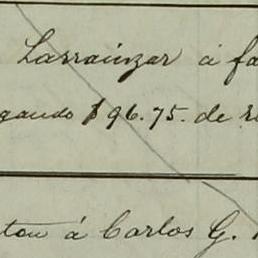 Larrainzar á fa
gando $96.75. de re
ton á Carlos G.